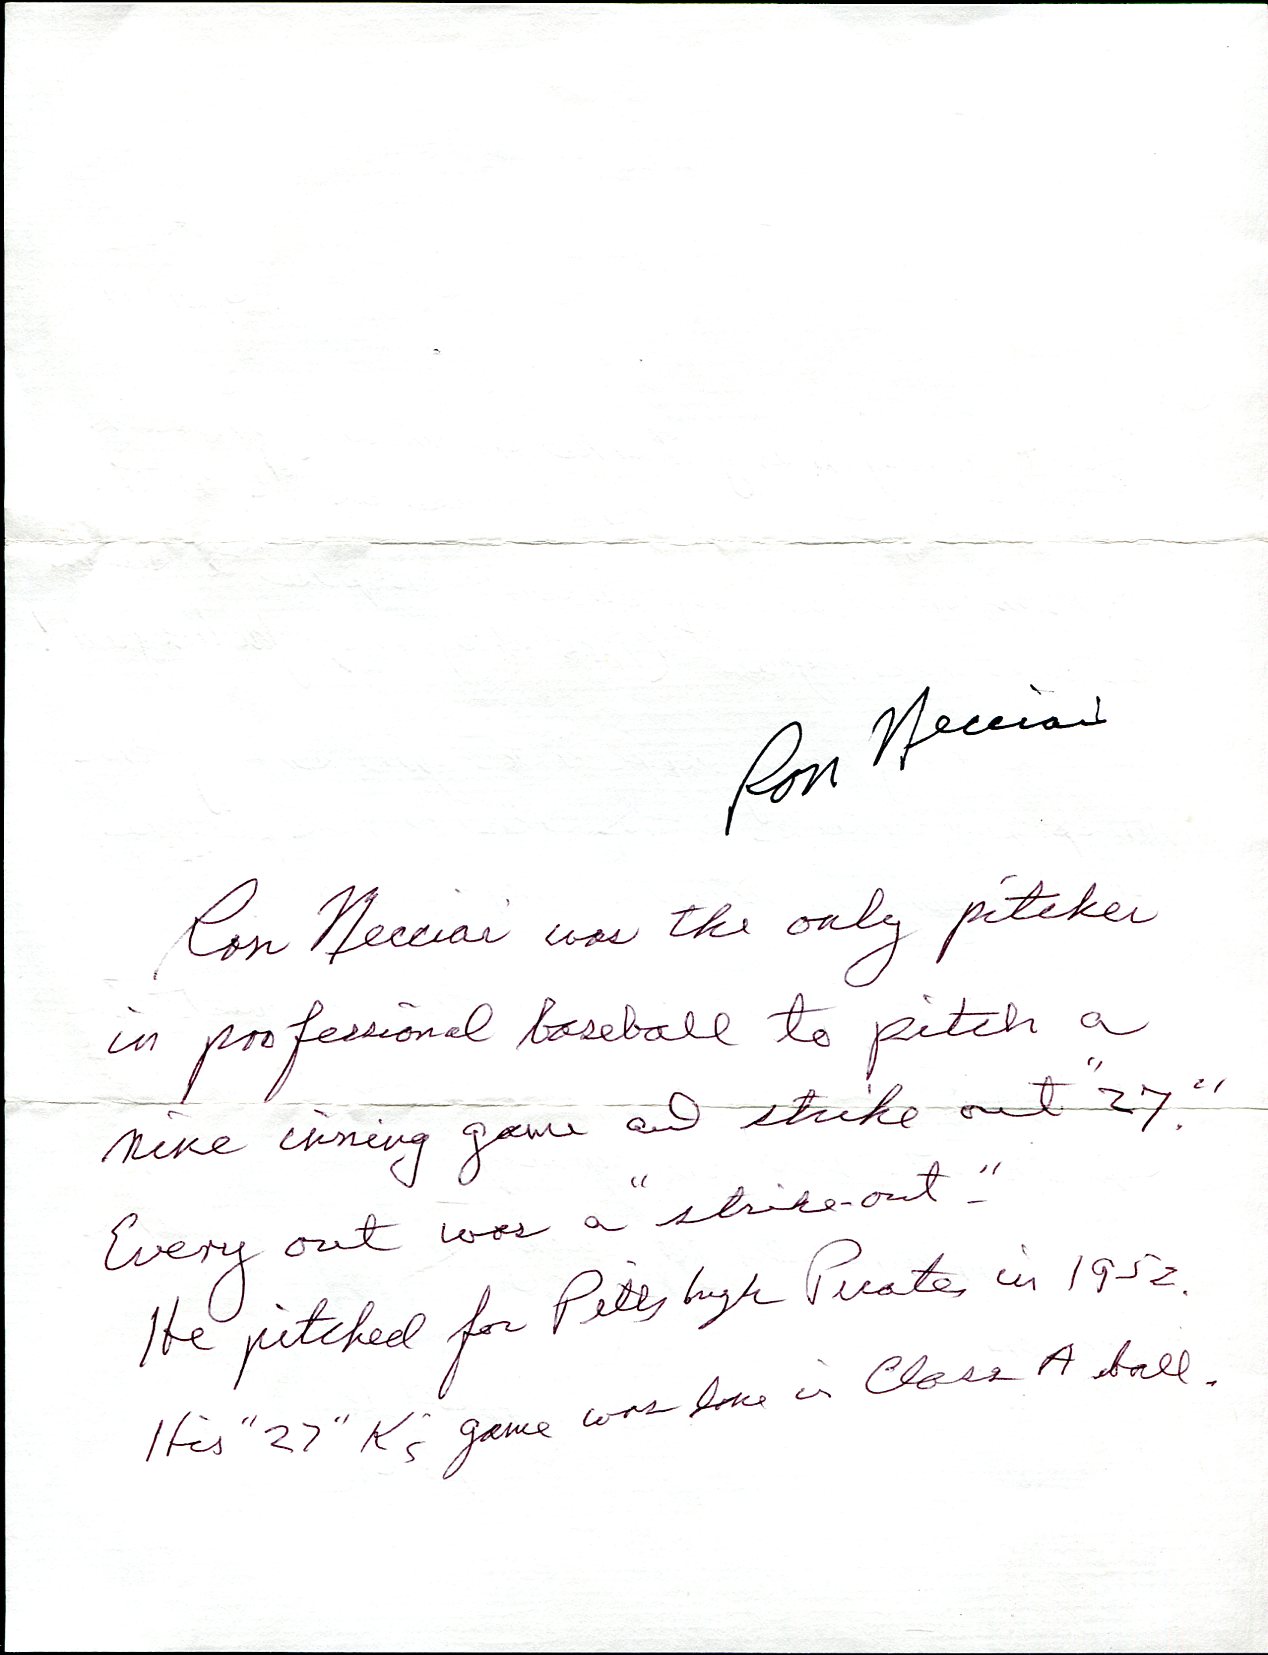 Ron Necciai
Ron Necciai was the only pitcher
in professional baseball to pitch a
nine inning game and strike out "27."
Every out was a "strike-out"-
He pitched for Pittsbugh Pirates in 1952.
His "27" K's game was done in Class A ball.